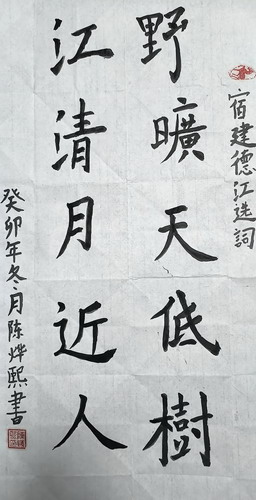 宿建德江选詞
野曠天低樹
江清月近人
癸卯年冬月陈烨熙書